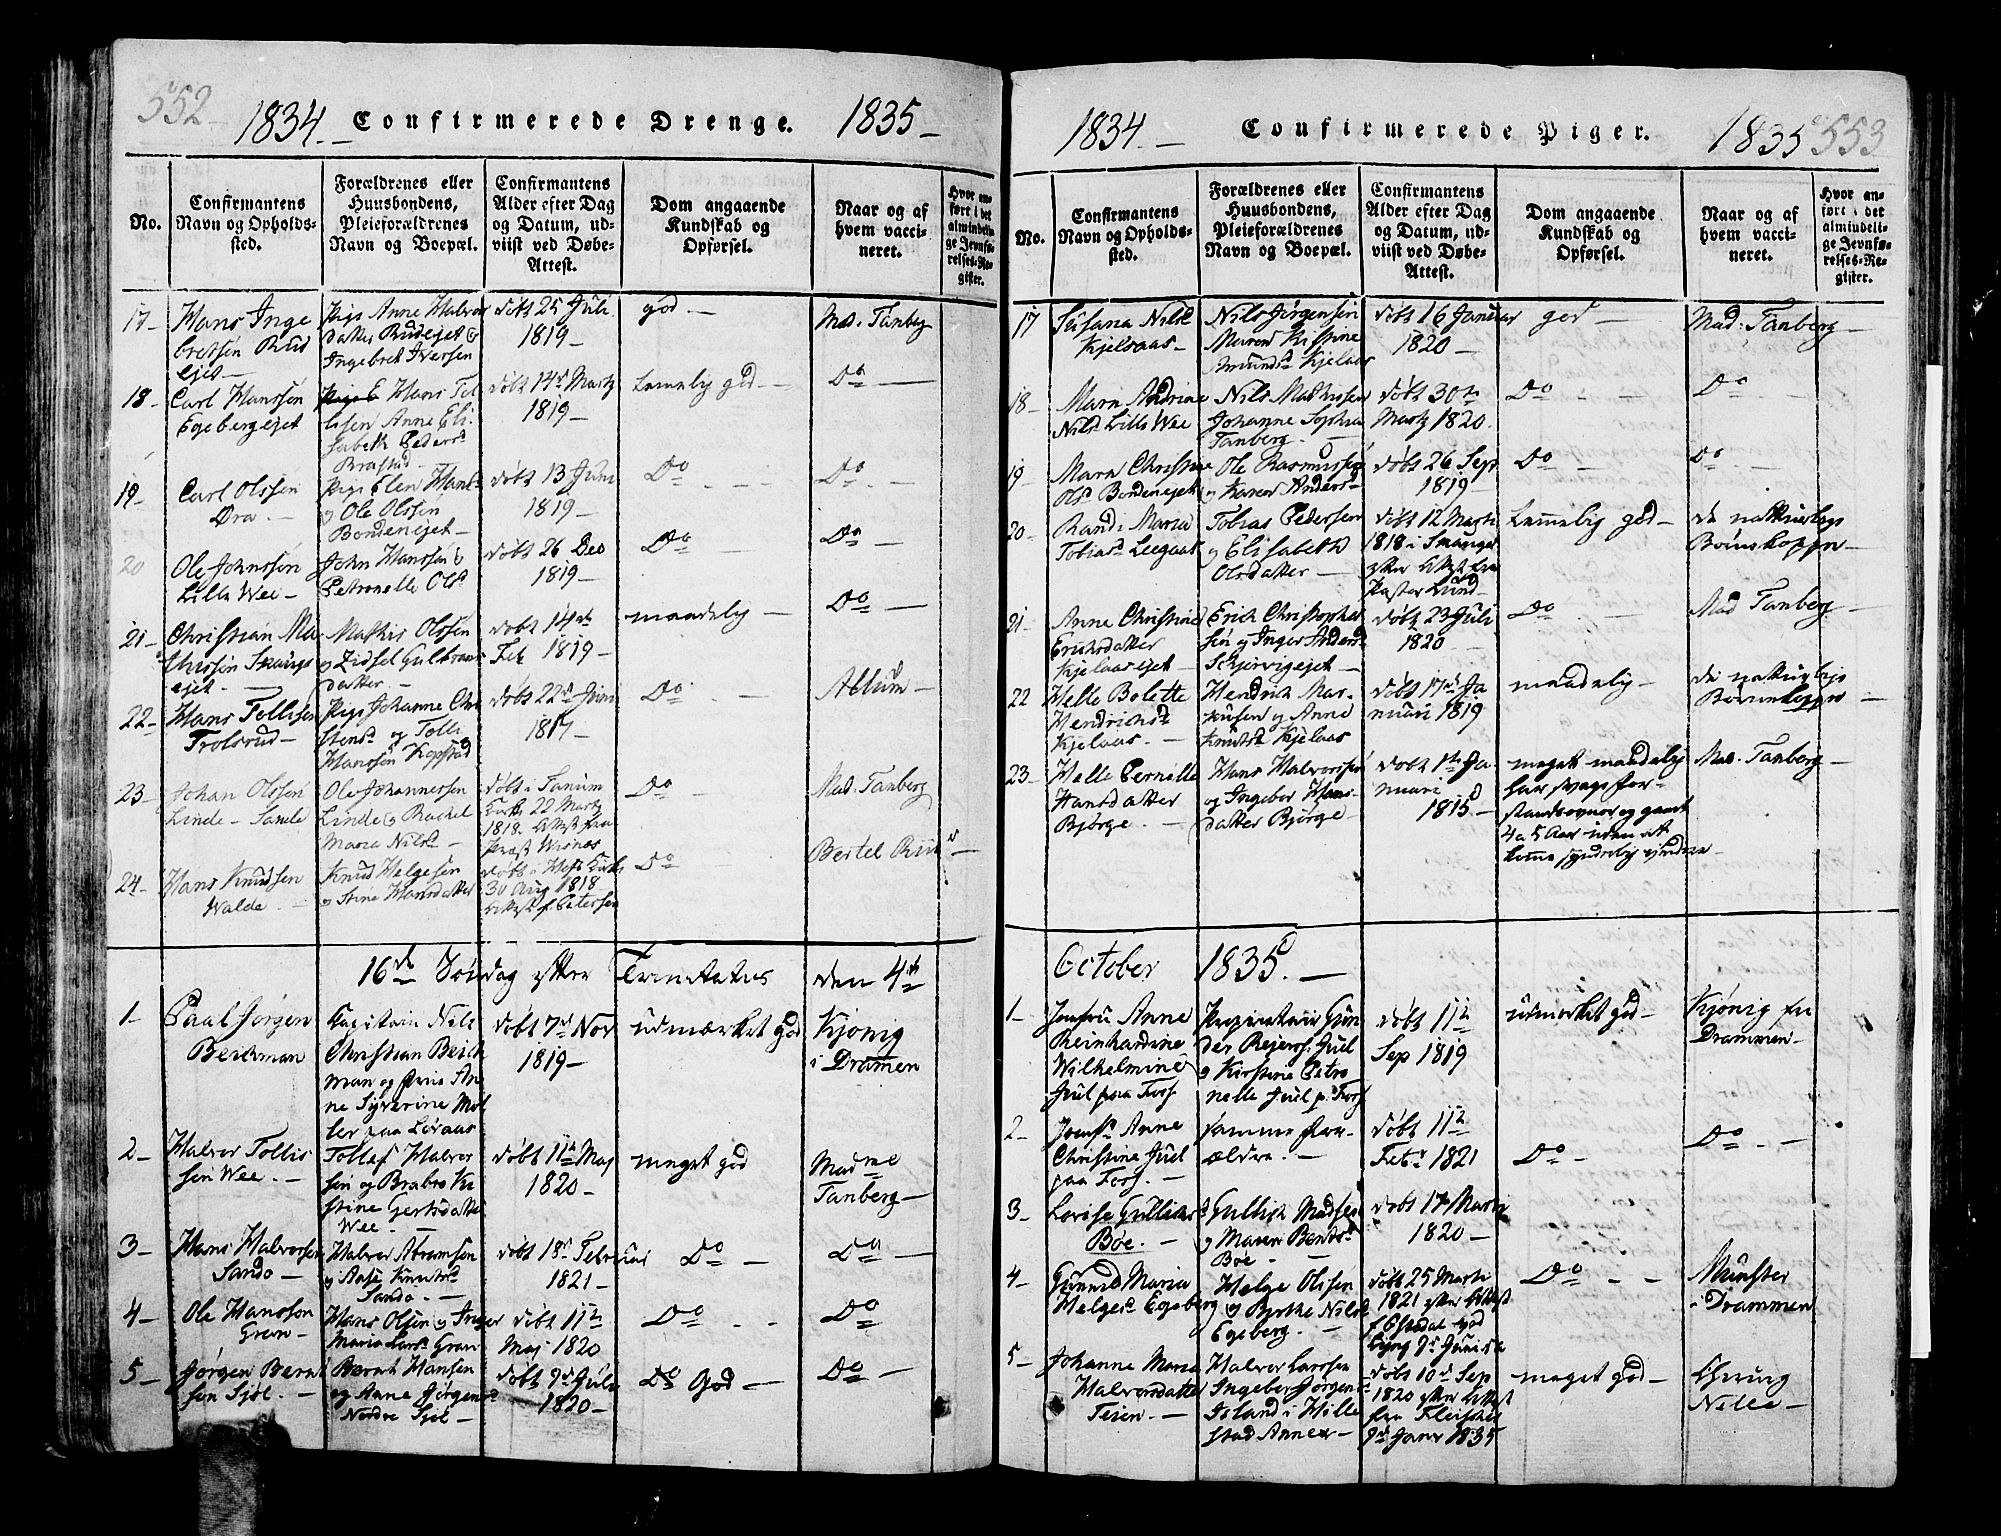 552
1834.– Confirmerede Drenge. 1835–
No.
Confirmantens
Navn og Opholds-
sted.
Forældrenes eller
Huusbondens,
Pleieforældrenes
Navn og Boepæl.
Confirmantens
Alder efter Dag
og Datum, ud-
viist ved Døbe-
Attest.
Dom angaaende
Kundskab og
Opførsel.
Naar og af
hvem vacci-
neret.
Hvor an-
ført i det
almindeli-
ge Jevnfø-
relses-Re-
gister.
17–
Hans Inge
bretsen Rud
ejet–
Pige Anne Halvors
datter Rudejet
Ingebret Iversen
døbt 25 Juli
1819–
god.–
Mad. Tanberg
18–
Carl Hanssen
Egebergejet
Hans Tol
Anne Eli
sabeth Peders
døbt 14d Martz
1819–
temelig god–
Do –
19–
Carl Olssen
Dra.–
Pige Elen Hans
Ole Olssen
Bondenejet–
døbt 13 Juni
1819–
Do –
Do –
20
Ole Johnssen
Lille Wee–
John Hanssen
Petronelle Ols
døbt 26 Dec
1819–
Do –
Do –
21–
Christian Ma
thissen Skaugs
ejet–
Mathis Olssen
Zidsel Gulbrans
datter–
døbt 14de
Feb 1819–
maadelig –
Do –
22–
Hans Tollefsen
Trolsrud–
Pige Johanne Chri
stensd og Tolle
Hanssen Kopstad
døbt 22d Juni
1817–
Do –
23–
Johan Olssen
Linde – Sande
Ole Johannesen
Linde Rachel
Maria Nilsd–
døbt i Tanum
Kirke 22 Martz
1818. Attest fra
Præst
Do –
Mad. Tanberg
24–
Hans Knudsen
Walde –
Knud Helgesen
Stine Hansdatter
døbt i Kirke
30 Aug 1818
Attest f. Petersen
Do –
Bertel
16de Søndag efter Trinitatis den 4de
1–
Paal Jørgen
Beichman
Capitain Nils
Christian Beich
man og Frue An
ne Syverine Møl
ler paa
døbt 7d Nov
1819–
udmærket god
Kjønig
i Dramen
2–
Halvor Tollis
sen Wee.–
Tollef Halvor
sen og
stine Gertsdatter
Wee –
døbt 11te Maj
1820–
meget god
Madme
Tanberg–
3–
Hans Halvorsen
Sando –
Halvor Abramsen
Aase Knuts
Sando –
døbt 18d Februar
1821–
Do
Do –
4–
Ole Hanssen
Gran–
Hans Olsen og Inger
Maria Lars Gran
døbt 11te
Maj 1820
Do –
Do
5–
Jørgen Bernt
sen Sjøl–
Bernt Hansen
og Anne Jørgensd
Nordre Sjøl–
døbt 9d Juli
1820–
Do God–
Do –
553
1834.– Confirmerede Piger. 1835
No.
Confirmantens
Navn og Opholds-
sted.
Forældrenes eller
Huusbondens,
Pleieforældrenes
Navn og Boepæl.
Confirmantens
Alder efter Dag
og Datum, ud-
viist ved Døbe-
Attest.
Dom angaaende
Kundskab og
Opførsel.
Naar og af
hvem vacci-
neret.
Hvor an-
ført i det
almindeli-
ge Jevnfø-
relses-Re-
gister.
17
Susana Nilsd
Kjelsaas–
Nils Jørgensen
Maren Kistine
Kjelaas
døbt 16 Januar
1820–
god –
Mad: Tanberg–
18
Maren Andrine
Nilsd Lille Wee
Nils Mathissen
Johanne Sophia
Tanberg.–
døbt 30te
Martz 1820.
Do –
Do –
19
Maren Christine
Olsd Bondenejet
Ole Rasmussen
Karen Anders
døbt 26 Sep
1819–
Do –
Do –
20–
Randi Maria
Tobiasd Leegaas
Tobias Pedersen
og Elisabeth
Olsdatter–
døbt 12 Marti
1818 i Skauger
efter Attest fra
Pastor Lund–
temelig god–
de naturlige
Børnekopper–
21–
Anne Christine
Erichsdatter
Kjelaasejet–
Erich Christopher
sen og Inger Anders
døbt 23 Juli
1820–
Do –
Mad Tanberg–
22
Helle Bolette
Hendrichsd
Kjelaas.–
Hendrich Mar
kusen og Anne
Knutsd Kjelaas
døbt 17d Ja
nuari 1819
maadelig–
de naturlige
Børnekopper –
23–
Helle Pernille
Hansdatter
Bjørge.–
Hans Halvorsen
og Ingebor Hans
datter Bjørge–
døbt 1te Ja
nuari
1815–
meget maadelig
har svage for
standsevner og gaaet
4 a 5 Aar uden at
Mad. Tanberg–
October 1835.–
1–
Jomfru Anne
Reinhardine
Wilhelmine
Juul paa Foss
Proprietair Gun
der Rejerss. Juel
Kirstine Petro
nelle Juul p. Foss
døbt 11te
Sep 1819
udmærket god–
Kjønig fra
Drammen–
2–
Jomfr. Anne
Christine Juel
paa Foss.–
samme for-
ældre.–
døbt 11te
Febr 1821
Do –
Do –
3–
Lovise Gullichsd
Bøe.–
Gullich Madsen
Maren Bentsd
Bøe –
døbt 17 Marti
1820–
4–
Gunnild Maria
Helgesd Egeberg
Helge Olssen
og Byrthe Nilsd
Egeberg.–
døbt 25 Marti
1821 efter Attest
Do – –
Munster
i Drammen
5–
Johanne Maria
Halvorsdatter
Teien.–
Halvor Larssen
Ingebor Jørgens
Island i Hille
stad Annex–
døbt 10d Sep
1820 efter Attest
fra Fleischer
9d Janr 1835
meget god–